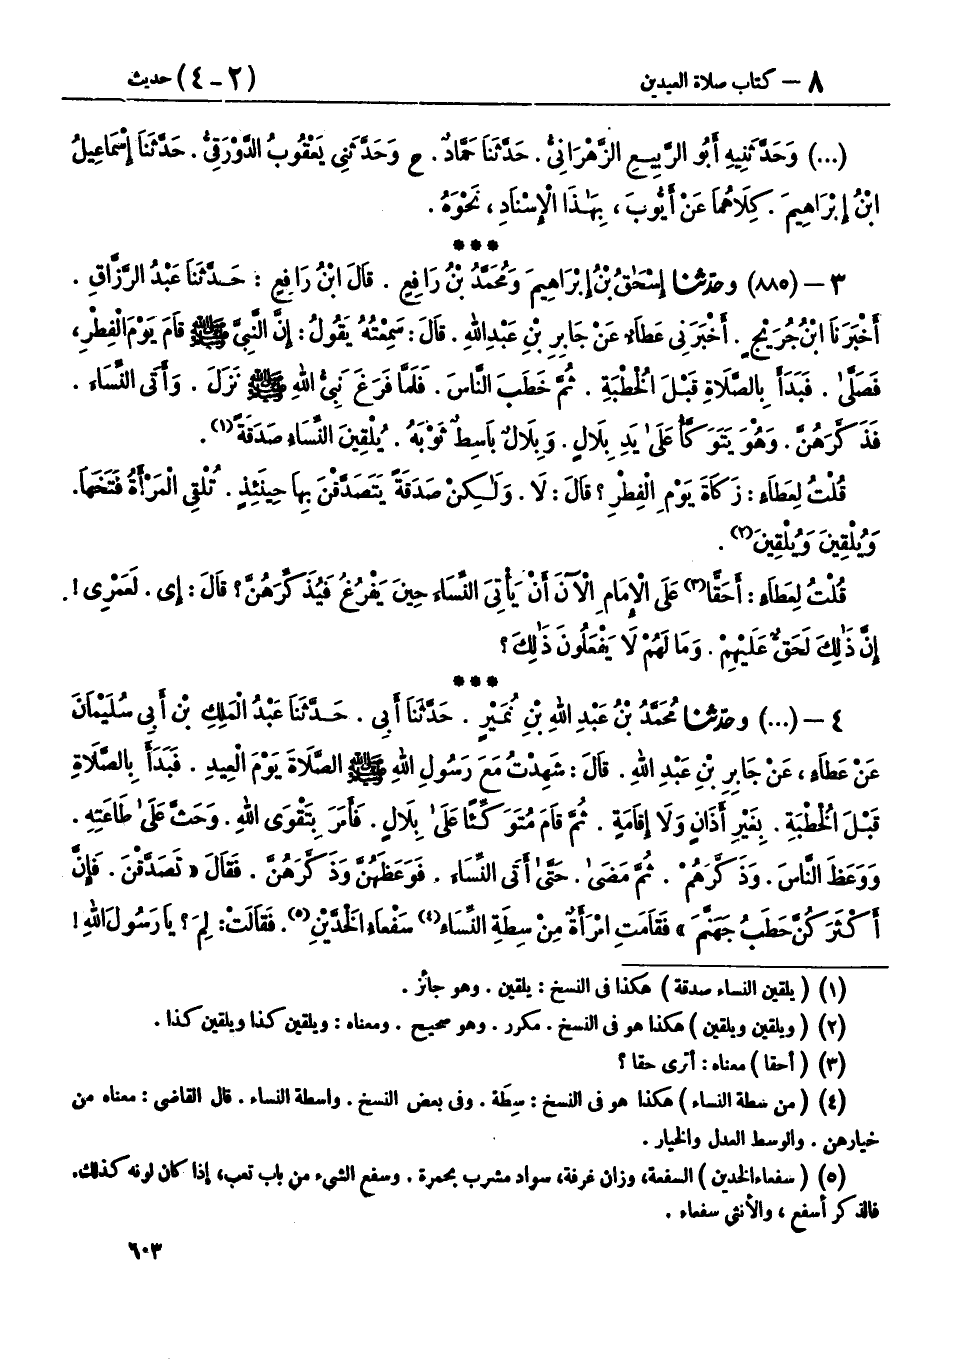 ٨ – كتاب صلاة العيدين (٢ – ٤) حديث
(...) وَحَدَّثَنِيهِ أَبُو الرَّبِيعِ الزَّهْرَانِيُّ . حَدَّثَنَا حَمَّادٌ . ح وَحَدَّثَنِي يَعْقُوبُ الدَّوْرَقِيُّ . حَدَّثَنَا إِسْمَاعِيلُ
ابْنُ إِبْرَاهِيمَ . كِلَاهُمَا عَنْ أَيُّوبَ ، بِهَٰذَا الْإِسْنَادِ ، نَحْوَهُ .
***
٣ – (٨٨٥) وحدثنا إِسْحَٰقُ بْنُ إِبْرَاهِيمَ وَمُحَمَّدُ بْنُ رَافِعٍ . قَالَ ابْنُ رَافِعٍ : حَدَّثَنَا عَبْدُ الرَّزَّاقِ .
أَخْبَرَنَا ابْنُ جُرَيْجٍ . أَخْبَرَنِي عَطَاءٌ عَنْ جَابِرِ بْنِ عَبْدِ اللهِ . قَالَ : سَمِعْتُهُ يَقُولُ : إِنَّ النَّبِيَّ ﷺ قَامَ يَوْمَ الْفِطْرِ ،
فَصَلَّىٰ . فَبَدَأَ بِالصَّلَاةِ قَبْلَ الْخُطْبَةِ . ثُمَّ خَطَبَ النَّاسَ . فَلَمَّا فَرَغَ نَبِيُّ اللهِ ﷺ نَزَلَ . وَأَتَى النِّسَاءَ .
فَذَكَّرَهُنَّ . وَهُوَ يَتَوَكَّأُ عَلَىٰ يَدِ بِلَالٍ . وَبِلَالٌ بَاسِطٌ ثَوْبَهُ . يُلْقِينَ النِّسَاءُ صَدَقَةً(١) .
قُلْتُ لِعَطَاءٍ : زَكَاةَ يَوْمِ الْفِطْرِ ؟ قَالَ : لَا . وَلَٰكِنْ صَدَقَةً يَتَصَدَّقْنَ بِهَا حِينَئِذٍ . تُلْقِي الْمَرْأَةُ فَتَخَهَا .
وَيُلْقِينَ وَيُلْقِينَ(٢) .
قُلْتُ لِعَطَاءٍ : أَحَقًّا(٣) عَلَى الْإِمَامِ الْآنَ أَنْ يَأْتِيَ النِّسَاءَ حِينَ يَفْرُغُ فَيُذَكِّرَهُنَّ ؟ قَالَ : إِي . لَعَمْرِي !
إِنَّ ذَٰلِكَ لَحَقٌّ عَلَيْهِمْ . وَمَا لَهُمْ لَا يَفْعَلُونَ ذَٰلِكَ ؟
***
٤ – (...) وحدثنا مُحَمَّدُ بْنُ عَبْدِ اللهِ بْنِ نُمَيْرٍ . حَدَّثَنَا أَبِي . حَدَّثَنَا عَبْدُ الْمَلِكِ بْنِ أَبِي سُلَيْمَانَ
عَنْ عَطَاءٍ ، عَنْ جَابِرِ بْنِ عَبْدِ اللهِ . قَالَ : شَهِدْتُ مَعَ رَسُولِ اللهِ ﷺ الصَّلَاةَ يَوْمَ الْعِيدِ . فَبَدَأَ بِالصَّلَاةِ
قَبْلَ الْخُطْبَةِ . بِغَيْرِ أَذَانٍ وَلَا إِقَامَةٍ . ثُمَّ قَامَ مُتَوَكِّئًا عَلَىٰ بِلَالٍ . فَأَمَرَ بِتَقْوَى اللهِ . وَحَثَّ عَلَىٰ طَاعَتِهِ .
وَوَعَظَ النَّاسَ . وَذَكَّرَهُمْ . ثُمَّ مَضَىٰ . حَتَّىٰ أَتَى النِّسَاءَ . فَوَعَظَهُنَّ وَذَكَّرَهُنَّ . فَقَالَ « تَصَدَّقْنَ . فَإِنَّ
أَكْثَرَكُنَّ حَطَبُ جَهَنَّمَ » فَقَامَتِ امْرَأَةٌ مِنْ سِطَةِ النِّسَاءِ(٤) سَفْعَاءُ الْخَدَّيْنِ(٥) . فَقَالَتْ : لِمَ ؟ يَا رَسُولَ اللهِ !
(١) ( يلقين النساء صدقة ) هكذا في النسخ : يلقين . وهو جائز .
(٢) ( ويلقين ويلقين ) هكذا هو في النسخ . مكرر . وهو صحيح . ومعناه : ويلقين كذا ويلقين كذا .
(٣) ( أحقا ) معناه : أترى حقا ؟
(٤) ( من سطة النساء ) هكذا هو في النسخ : سِطَة . وفي بعض النسخ . واسطة النساء . قال القاضي : معناه من
خيارهن . والوسط العدل والخيار .
(٥) ( سفعاء الخدين ) السفعة ، وزان غرفة ، سواد مشرب بحمرة . وسفع الشيء من باب تعب ، إذا كان لونه كذلك .
فالذكر أسفع ، والأنثى سفعاء .
٦٠٣